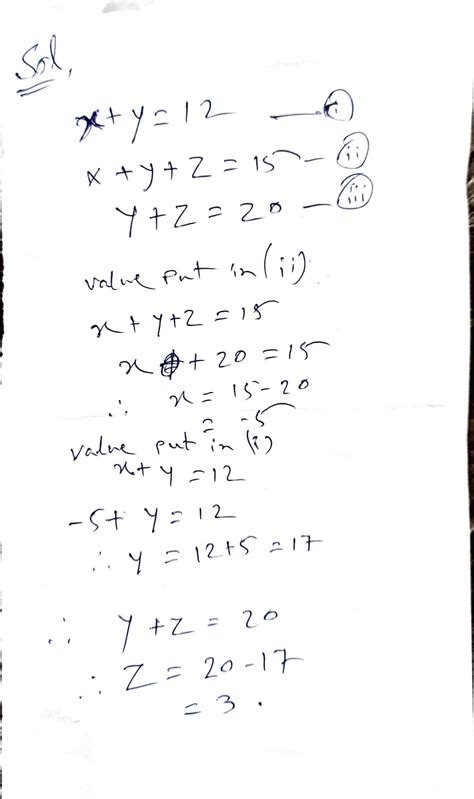 Sol,
x+y=12 — (i)
x+y+z=15 — (ii)
y+z=20 — (iii)
value put in (ii)
x+y+z=15
x + 20 = 15
∴ x = 15-20
= -5
value put in (i)
x+y=12
-5+ y=12
∴ y = 12+5=17
∴ y+z=20
∴ z=20-17
=3.